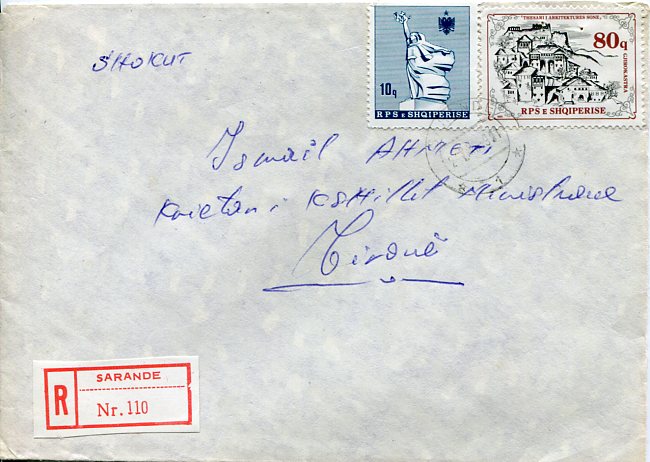 SHOKUT
10q
RPS E SHQIPERISE
"THESARI I ARKITEKTURES SONE"
80q
GJIROKASTRA
RPS E SHQIPERISE
Ismail AHMETI
Kryetar i Këshillit Ministrave
Tiranë
R
SARANDE
Nr. 110